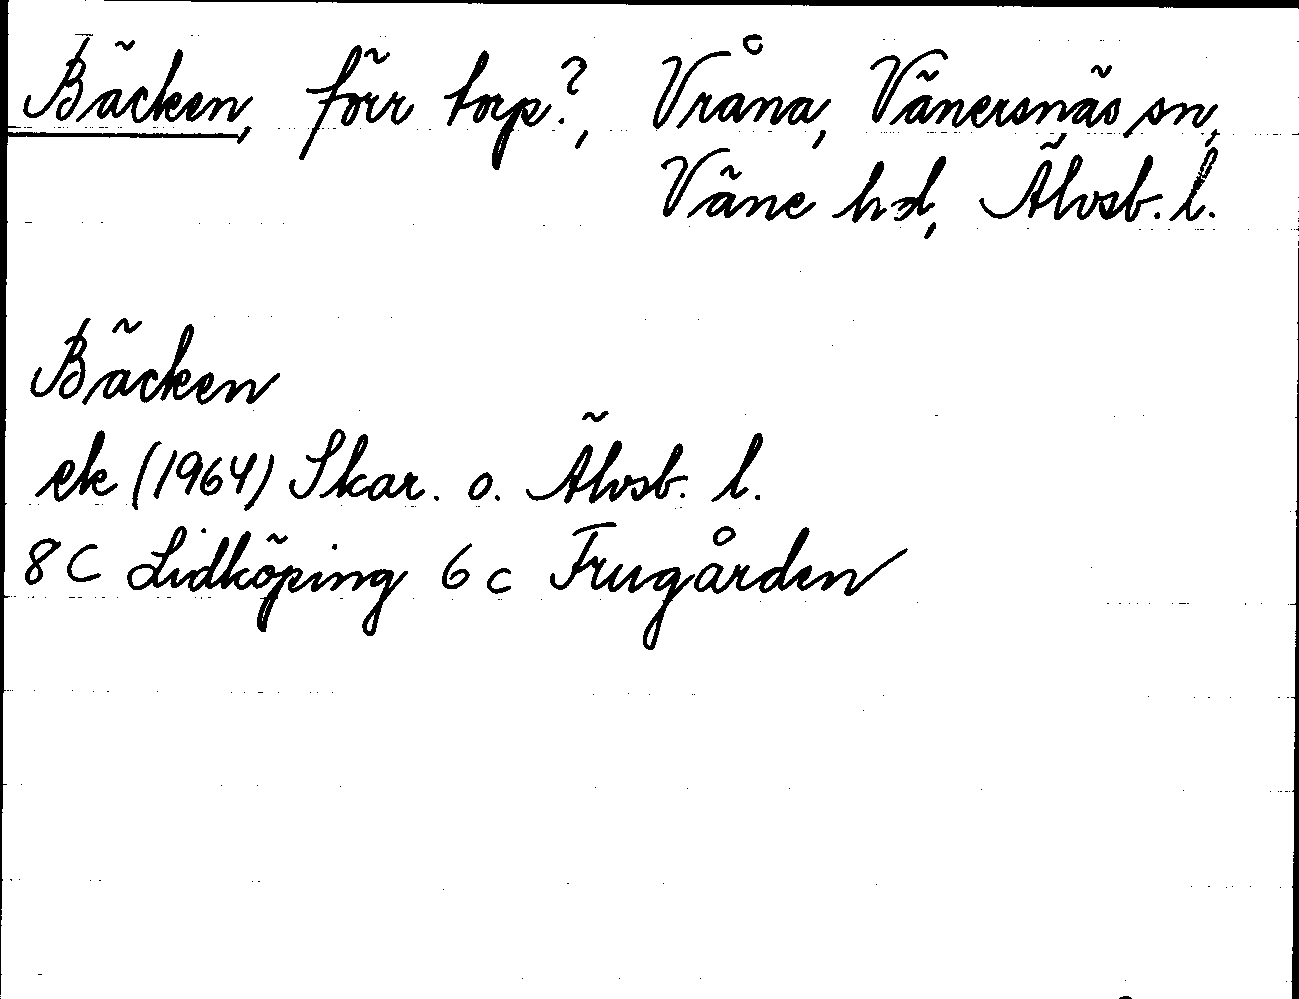 Bäcken, förr torp?, Vråna, Vänersnäs sn,
Väne hd, Älvsb. l.
Bäcken
ek (1964) Skar. o. Älvsb. l.
8 C Lidköping 6 c Frugården